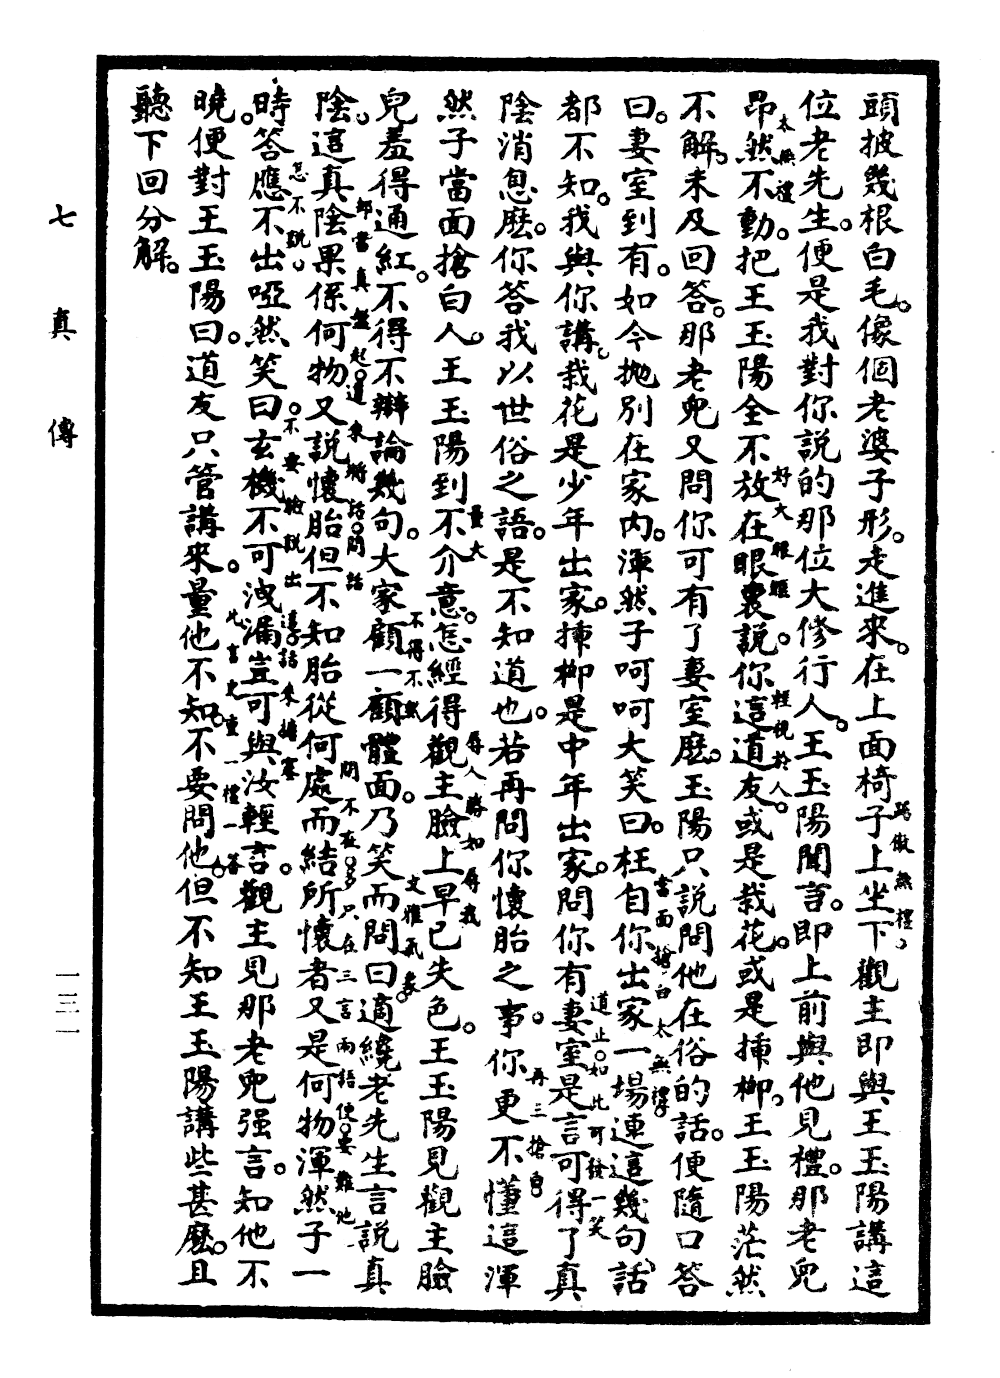 頭披幾根白毛。像個老婆子形。走進來。在上面椅子上坐下。觀主即與王玉陽講這
驕傲無禮
位老先生。便是我對你說的那位大修行人。王玉陽聞言。即上前與他見禮。那老兒
昂然不動。把王玉陽全不放在眼裏。說你這道友。或是栽花。或是插柳。王玉陽茫然
太無禮
好大眼睛
輕視於人。
不解。未及回答。那老兒又問你可有了妻室麽。玉陽只說問他在俗的話。便隨口答
曰。妻室到有。如今拋別在家內。渾然子呵呵大笑曰。枉自你出家一場。連這幾句話
當面搶白太無禮
都不知。我與你講。栽花是少年出家。插柳是中年出家。問你有妻室。是言可得了真
道止。如此可發一笑
陰消息麽。你答我以世俗之語。是不知道也。若再問你懷胎之事。你更不懂這渾
再三搶白
然子當面搶白人。王玉陽到不介意。怎經得觀主臉上早已失色。王玉陽見觀主臉
量大
辱人勝如辱我
兒羞得通紅。不得不辯論幾句。大家顧一顧體面。乃笑而問曰。適纔老先生言說真
不得不然
文雅氣象
陰。這真陰果係何物。又說懷胎。但不知胎從何處而結。所懷者又是何物。渾然子一
卻當真盤起。道來將話。問話
問不在。多只在三言兩語。便要難他
時答應不出。啞然笑曰。玄機不可洩漏。豈可與汝輕言。觀主見那老兒强言。知他不
怎不說。
不要臉說出這等話來搪塞
曉。便對王玉陽曰。道友只管講來。量他不知。不要問他。但不知王玉陽講些甚麽。且
此言更重一禮一答
聽下回分解。
七真傳
一三一